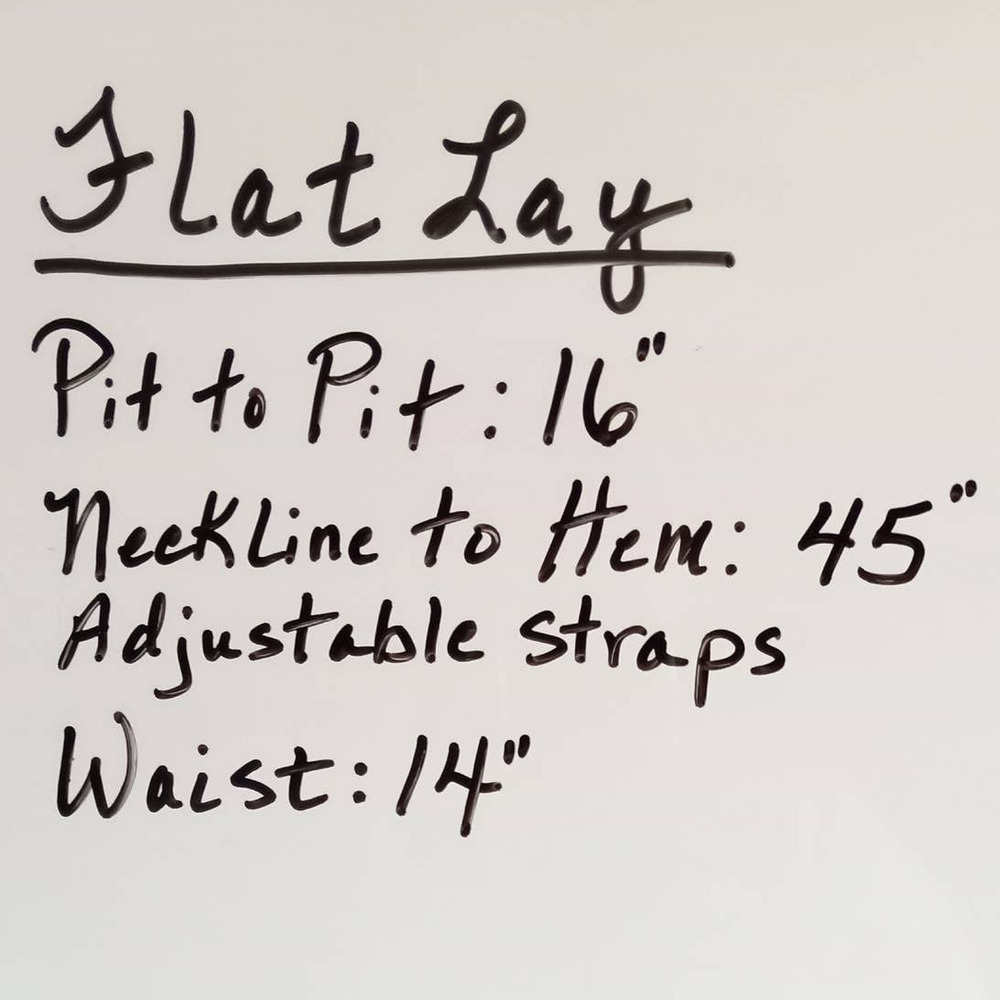 Flat Lay
Pit to Pit: 16"
Neckline to Hem: 45"
Adjustable straps
Waist: 14"